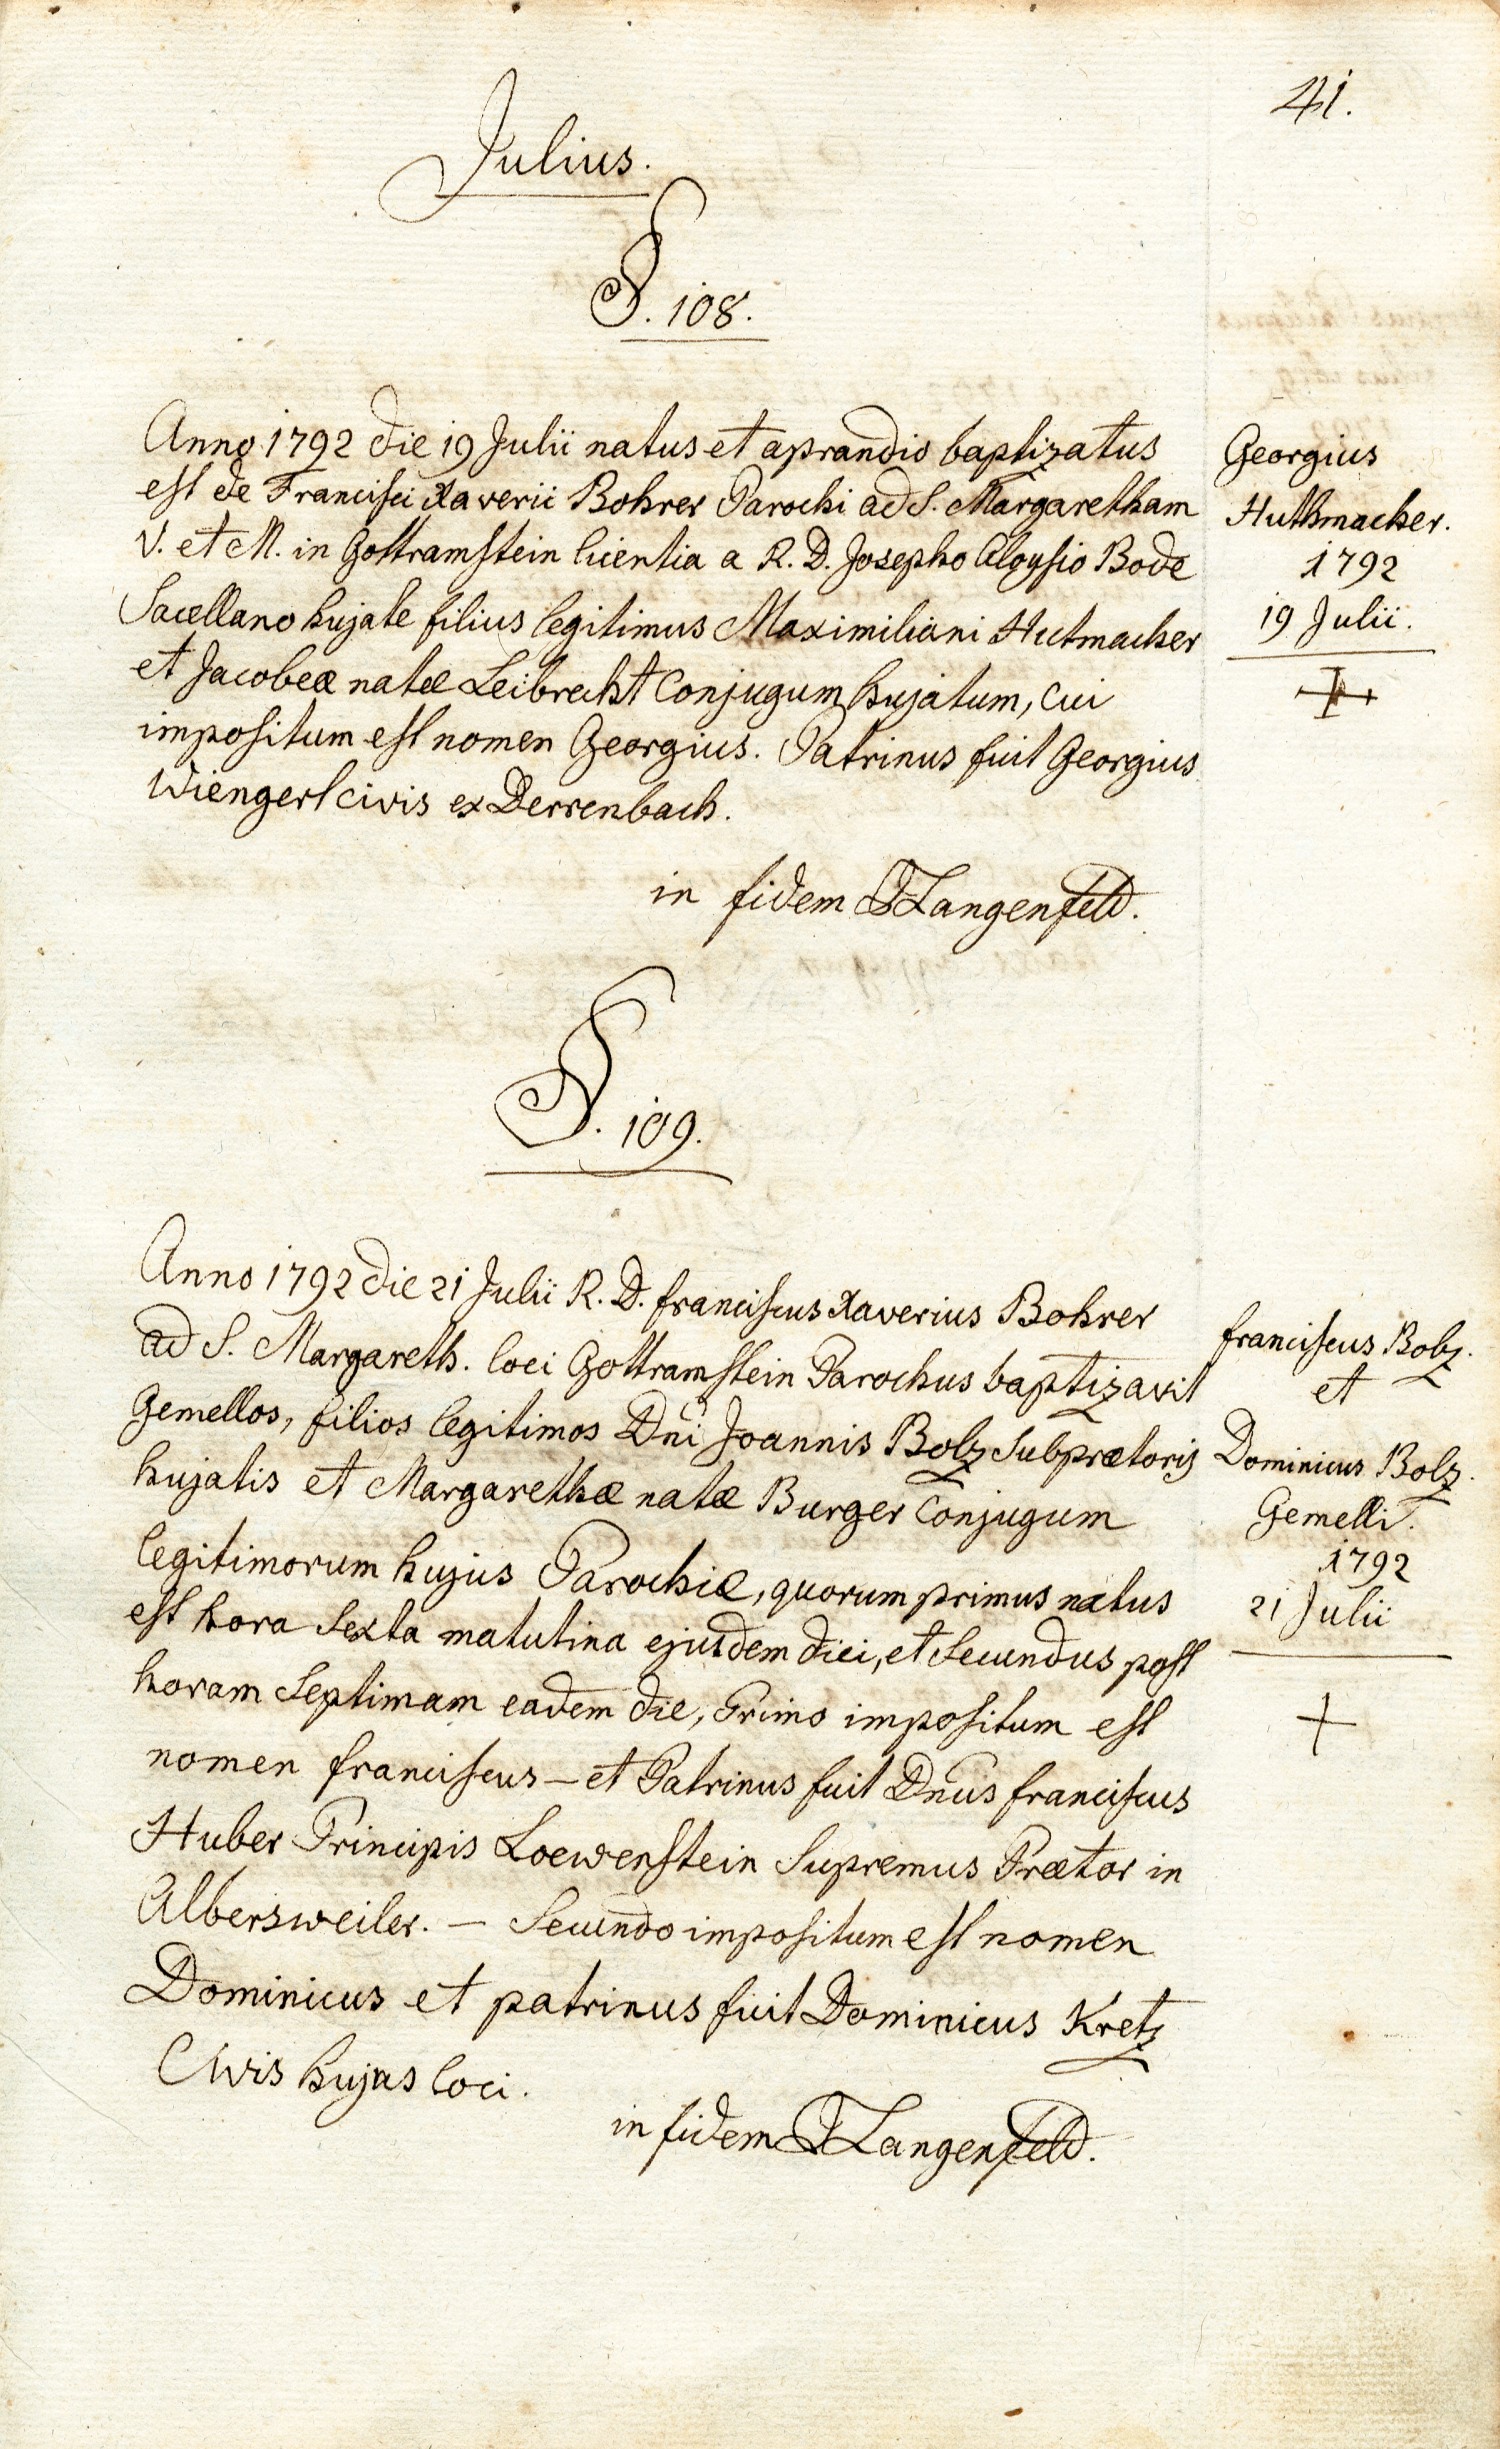 41.
Julius.
§. 108.
Anno 1792 die 19 Julii natus et aprandio baptizatus
est de Francisci Xaverii Bohrer Parochi ad S. Margaretham
V. et M. in Gottramstein licentia a R. D. Josepho Aloysio Bode
Sacellano hujate filius legitimus Maximiliani Hutmacher
et Jacobeæ natæ Leibrecht Conjugum hujatum, cui
impositum est nomen Georgius. Patrinus fuit Georgius
Wiengert civis ex Derrenbach.
in fidem Langenfeld.
Georgius
Huthmacher.
1792
19 Julii.
§. 109.
Anno 1792 die 21 Julii R. D. franciscus Xaverius Bohrer
ad S. Margareth. loci Gottramstein Parochus baptizavit
Gemellos, filios legitimos Dni Joannis Bolz Subprætoris
hujatis et Margarethæ natæ Burger Conjugum
legitimorum hujus Parochiæ, quorum primus natus
est hora Sexta matutina ejusdem diei, et Secundus post
horam Septimam eadem die, Primo impositum est
nomen franciscus – et Patrinus fuit Dnus franciscus
Huber Principis Loewenstein Supremus Prætor in
Albersweiler. – Secundo impositum est nomen
Dominicus et patrinus fuit Dominicus Kretz
Civis hujus loci.
in fidem Langenfeld.
franciscus Bolz.
et
Dominicus Bolz.
Gemelli.
1792
21 Julii